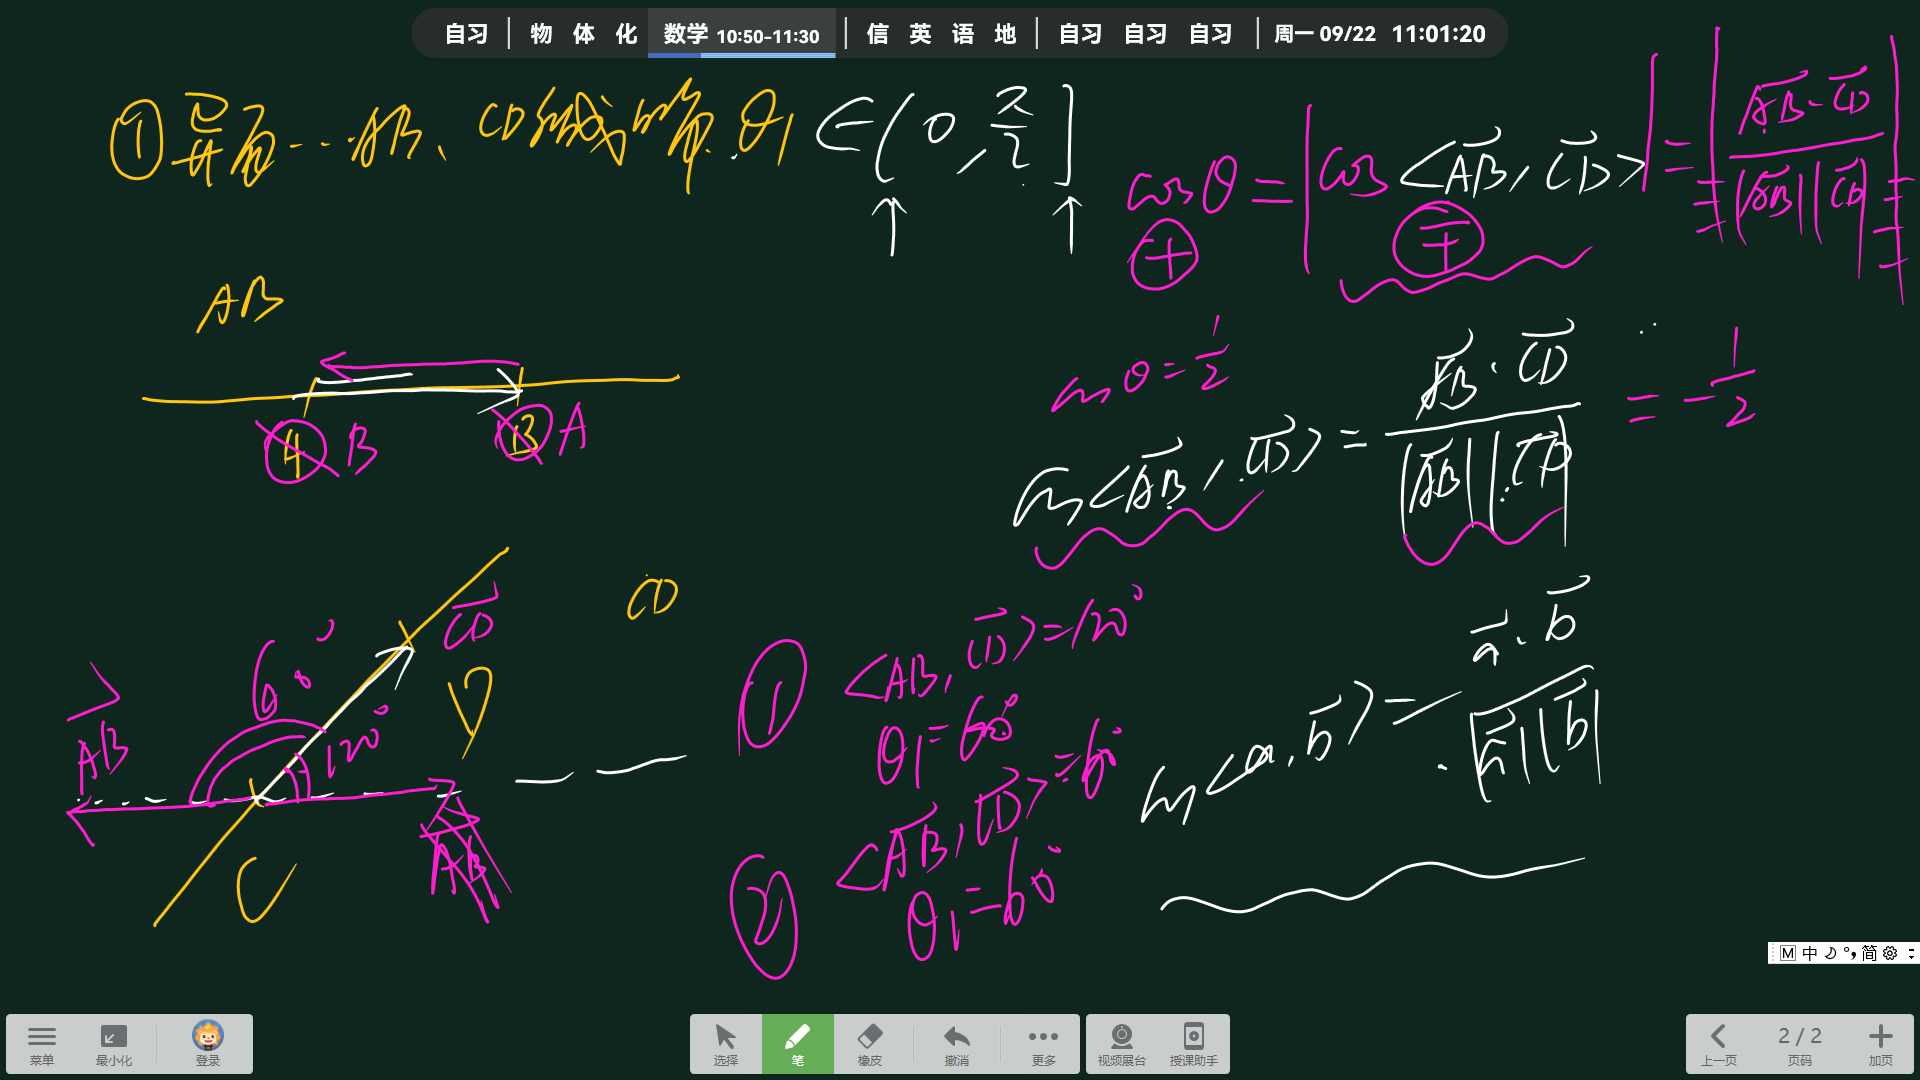 自习 | 物 体 化 数学 10:50-11:30 | 信 英 语 地 | 自习 自习 自习 | 周一 09/22 11:01:20
①异面…AB、CD 线的角.θ₁ ∈(0, π/2]
cosθ = |cos<AB→, CD→>| = |AB→·CD→ / |AB→||CD→||
+
AB
cosθ = 1/2
A B
B A
cos<AB→, CD→> = AB→·CD→ / |AB→||CD→| = -1/2
CD
CD→
60°
120°
D
AB→
AB
C
① <AB, CD→> = 120°
θ₁ = 60°
② <AB→, CD→> = 60°
θ₁ = 60°
cos<a, b→> = a→·b→ / |a→||b→|
M 中 简
菜单 最小化 登录
选择 笔 橡皮 撤消 更多
视频展台 授课助手
上一页 2 / 2 页码 加页